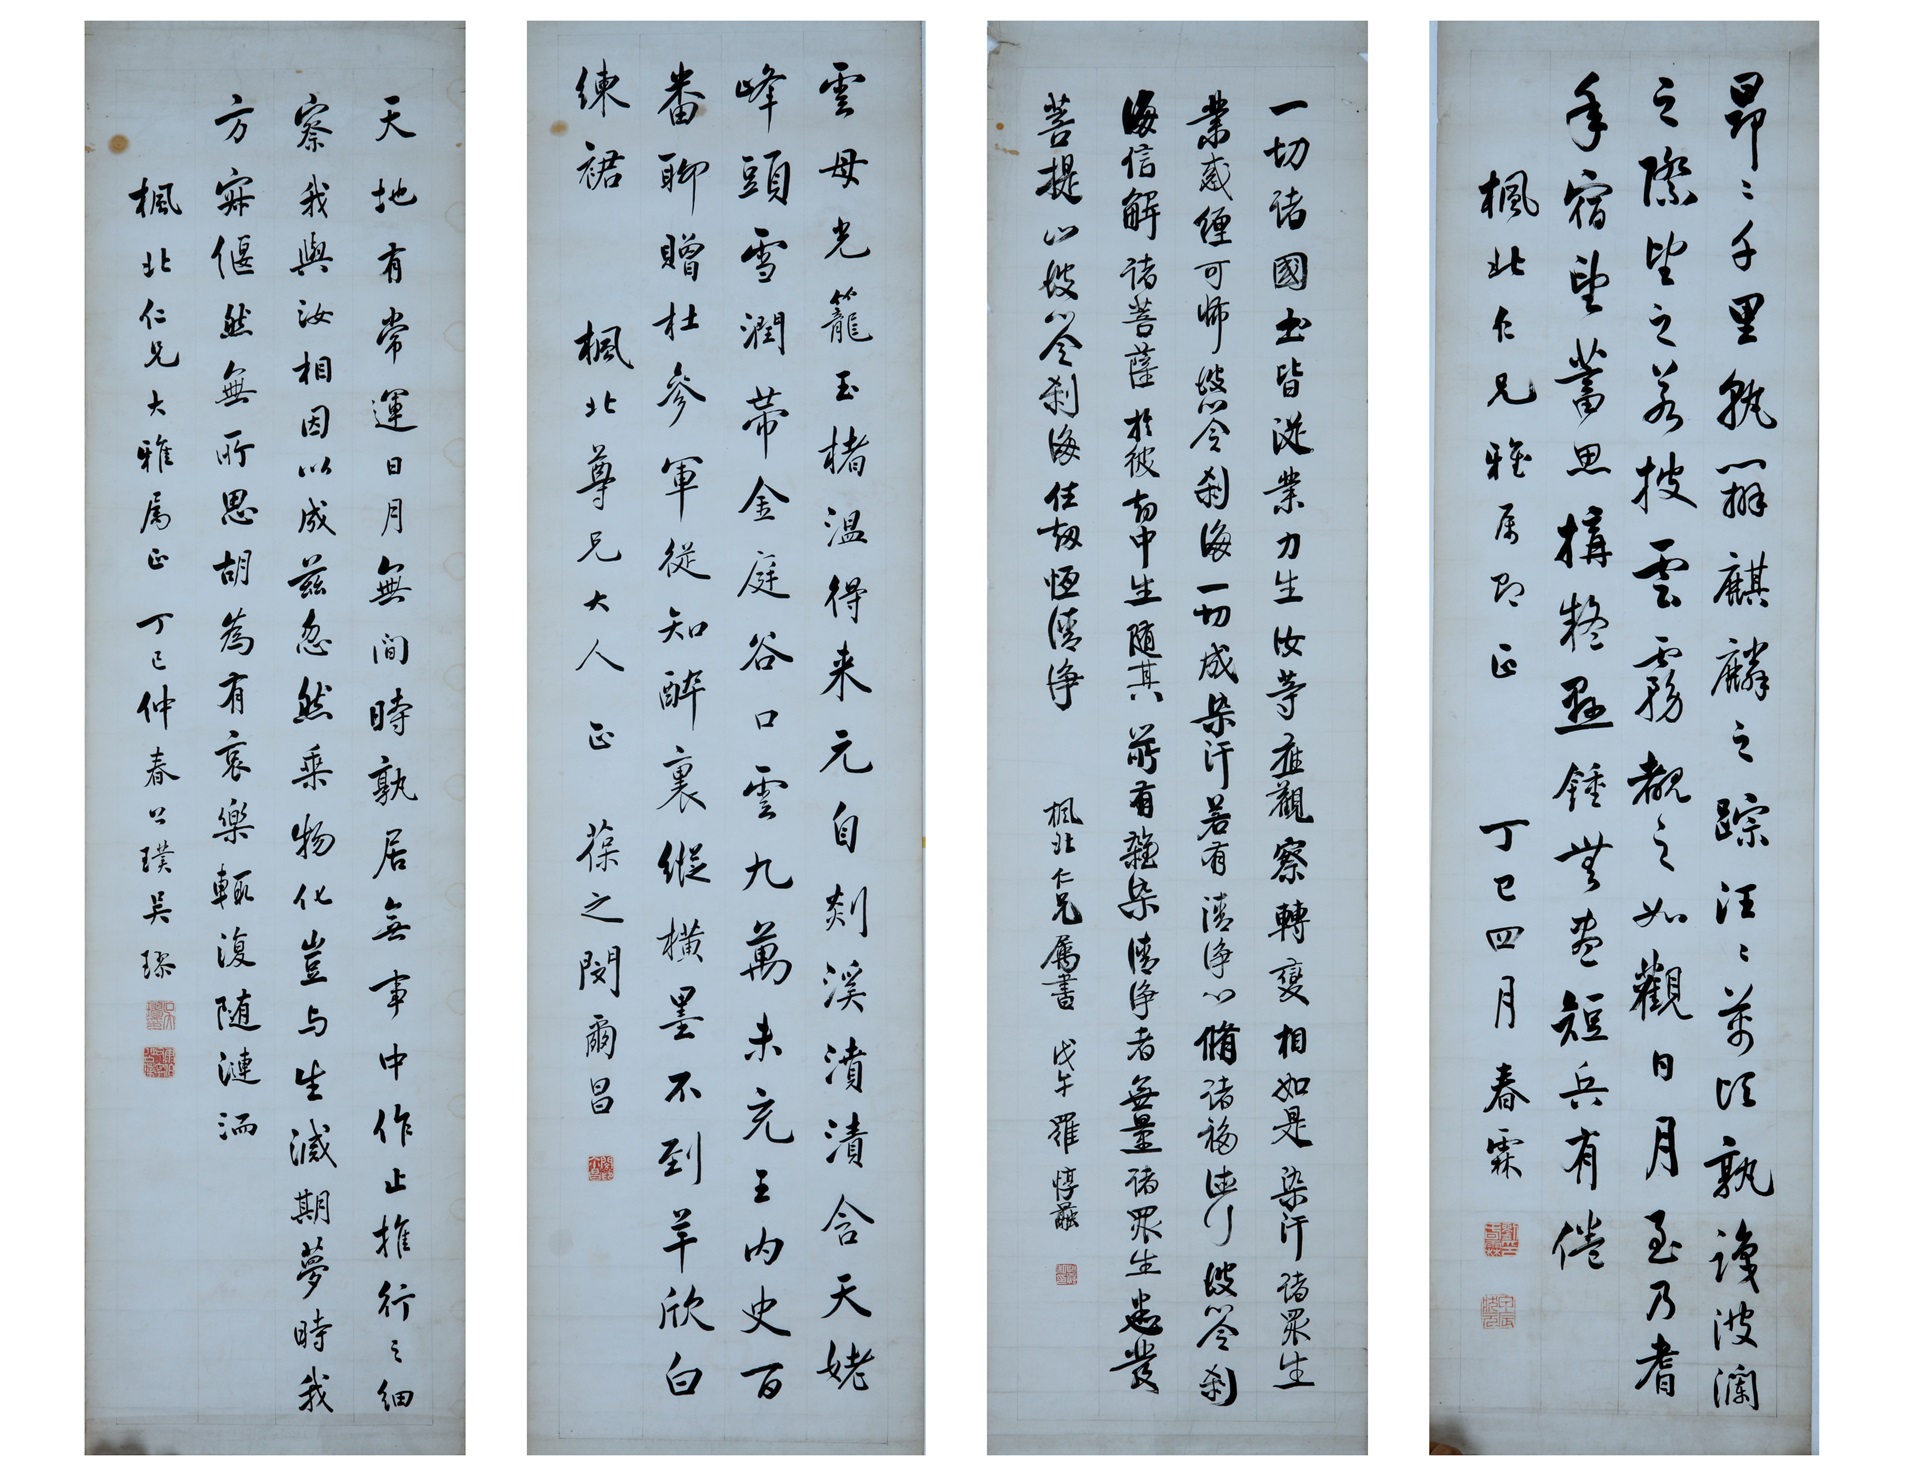 昂〻千里孰辨麒麟之踪汪〻萬頃孰識波瀾
之際望之若披雲霧覩之如觀日月至乃耆
年宿望蓄思構疑懸鍾無盡短兵有倦
楓北仁兄雅屬即正 丁巳四月 春霖
一切諸國土皆從業力生汝等應觀察轉變相如是染汙諸眾生
業惑纏可怖彼心令剎海一切成染汙若有清淨心脩諸福德行彼心令剎
海信解諸菩薩於彼劫中生隨其所有雜染清淨者無量諸眾生悉發
菩提心彼心令剎海住劫恆清淨
楓北仁兄屬書 戊午 羅惇曧
雲母光籠玉楮溫得來元自剡溪濆漬含天姥
峰頭雪潤帶金庭谷口雲九萬未充王內史百
番聊贈杜參軍從知醉裏縱橫墨不到羊欣白
練裙
楓北尊兄大人 正 葆之閔爾昌
天地有常運日月無閒時孰居無事中作止推行之細
察我與汝相因以成茲忽然乘物化豈与生滅期夢時我
方寐偃然無所思胡為有哀樂輒復隨漣洏
楓北仁兄大雅屬正 丁巳仲春 公璞吳璆